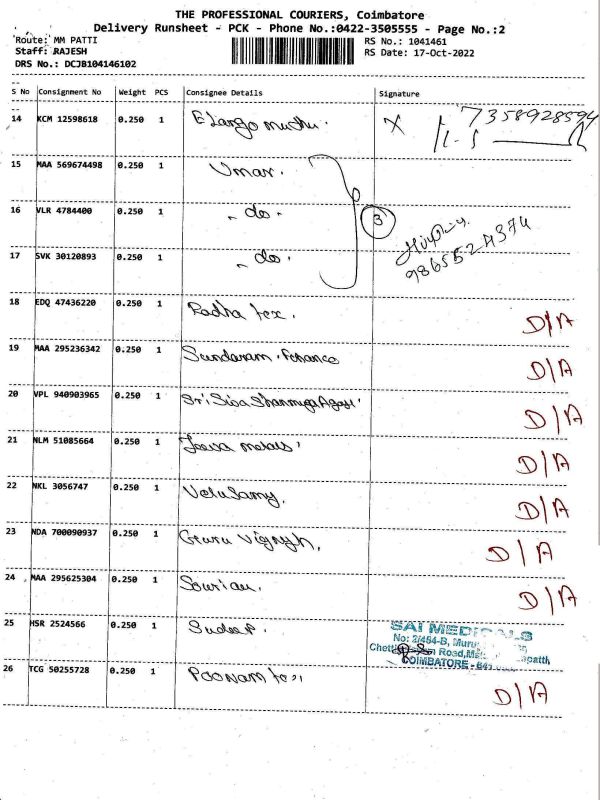 THE PROFESSIONAL COURIERS, Coimbatore
Delivery Runsheet - PCK - Phone No.:0422-3505555 - Page No.:2
Route: MM PATTI RS No.: 1041461
Staff: RAJESH RS Date: 17-Oct-2022
DRS No.: DCJB104146102
S No Consignment No Weight PCS Consignee Details Signature
14 KCM 12598618 0.250 1 Elango muthu. X 7358928594
15 MAA 569674498 0.250 1 Umar.
16 VLR 4784400 0.250 1 - do - 3
17 SVK 30120893 0.250 1 - do - 9865524374
18 EDQ 47436220 0.250 1 Radha tex. D/A
19 MAA 295236342 0.250 1 Sundaram. Finance D/A
20 VPL 940903965 0.250 1 Sri Siva Shanmuga D/A
21 NLM 51085664 0.250 1 D/A
22 NKL 3056747 0.250 1 Velusamy. D/A
23 NDA 700090937 0.250 1 Guru D/A
24 MAA 295625304 0.250 1 D/A
25 HSR 2524566 0.250 1 Sudeep. SAI MEDICALS
No: 2/484-B,
Road,
COIMBATORE - 641
26 TCG 50255728 0.250 1 POONAM tex D/A